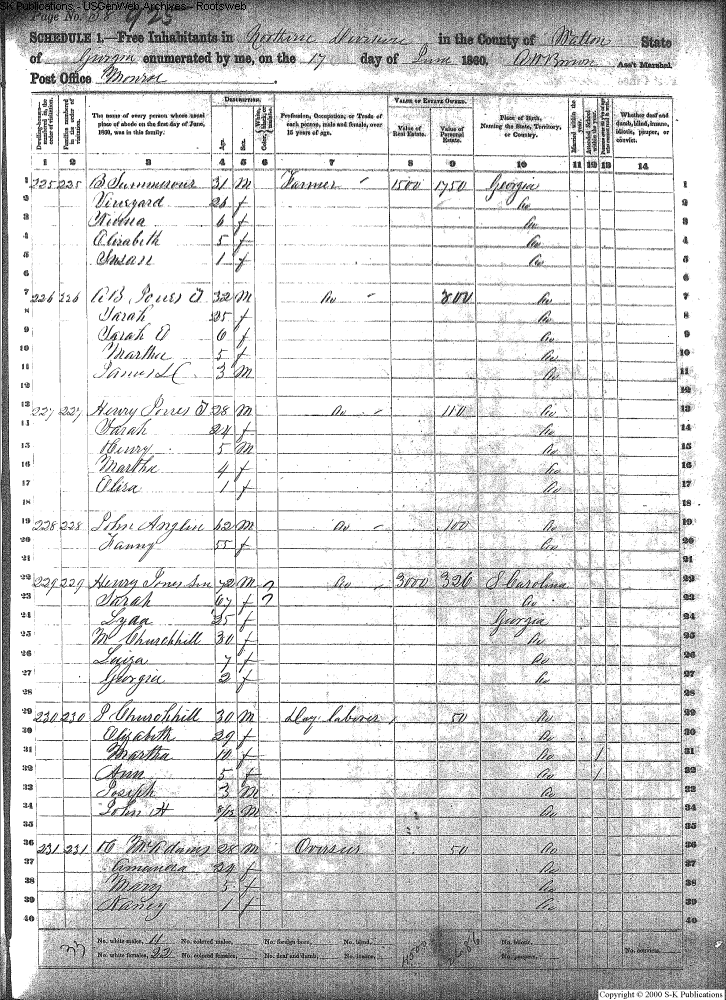 S-K Publications - USGenWeb Archives - Rootsweb
Page No. 38 925
SCHEDULE 1.—Free Inhabitants in Division in the County of Walton State
of Georgia enumerated by me, on the 17 day of June 1860. Ass't Marshal.
Post Office Monroe
Dwelling-houses—numbered in the order of visitation.
Families numbered in the order of visitation.
The name of every person whose usual place of abode on the first day of June, 1860, was in this family.
DESCRIPTION.
Age.
Sex.
Profession, Occupation, or Trade of each person, male and female, over 15 years of age.
VALUE OF ESTATE OWNED.
Value of Real Estate.
Value of Personal Estate.
Place of Birth, Naming the State, Territory, or Country.
Married within the year.
Attended School within the year.
Whether deaf and dumb, blind, insane, idiotic, pauper, or convict.
1 2 3 4 5 6 7 8 9 10 11 12 13 14
1 225 225 B Summerour 31 M Farmer 1500 1750 Georgia 1
2 Vineyard 26 f Do 2
3 6 f Do 3
4 Elizabeth 5 f Do 4
5 Susan 1 f Do 5
6 6
7 226 226 Jones 32 M Do 300 Do 7
8 Sarah 25 f Do 8
9 Sarah 6 f Do 9
10 Martha 5 f Do 10
11 James 3 M Do 11
12 12
13 227 227 Henry Jones 28 M Do 110 Do 13
14 Sarah 24 f Do 14
15 Henry 5 M Do 15
16 Martha 4 f Do 16
17 Eliza 1 f Do 17
18 18
19 228 228 John Anglin 62 M Do 100 Do 19
20 Fanny 55 f Do 20
21 21
22 229 229 Henry Jones Snr 72 M ? Do 3000 326 S Carolina 22
23 Sarah 67 f ? Do 23
24 25 f Georgia 24
25 M Churchhill 30 f Do 25
26 7 f Do 26
27 Georgia 2 f Do 27
28 28
29 230 230 Churchhill 30 M Day laborer 50 Do 29
30 Elizabeth 29 f Do 30
31 Martha 10 f Do / 31
32 Ann 5 f Do / 32
33 Joseph 3 M Do 33
34 John H 8/12 M Do 34
35 35
36 231 231 McAdams 28 M Overseer 50 Do 36
37 Amanda 24 f Do 37
38 Mary 5 f Do 38
39 Nancy 1 f Do 39
40 40
33 No. white males, 11 No. colored males, No. foreign born, No. blind, 4500 No. idiotic,
No. white females, 22 No. colored females, No. deaf and dumb, No. insane, No. paupers, No. convicts,
Copyright © 2000 S-K Publications